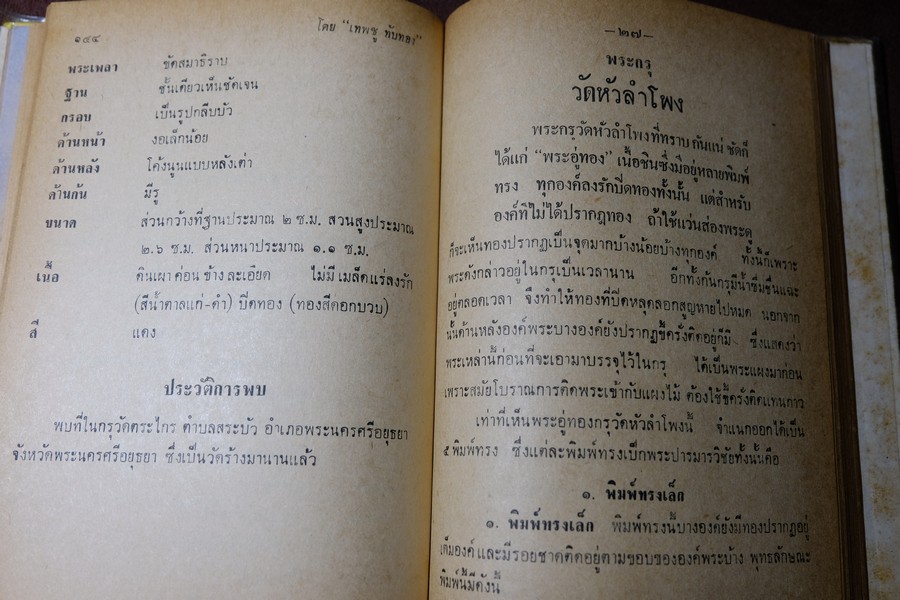 ๑๔๔ โดย “เทพชู ทับทอง”
พระเพลา ขัดสมาธิราบ
ฐาน ชั้นเดียวเห็นชัดเจน
กรอบ เป็นรูปกลีบบัว
ด้านหน้า งอเล็กน้อย
ด้านหลัง โค้งนูนแบบหลังเต่า
ด้านก้น มีรู
ขนาด ส่วนกว้างที่ฐานประมาณ ๒ ซ.ม. ส่วนสูงประมาณ
๒.๖ ซ.ม. ส่วนหนาประมาณ ๑.๑ ซ.ม.
เนื้อ ดินเผา ค่อนข้างละเอียด ไม่มีเมล็ดแร่ลงรัก
(สีน้ำตาลแก่-ดำ) ปิดทอง (ทองสีดอกบวบ)
สี แดง
ประวัติการพบ
พบที่ในกรุวัดตระไกร ตำบลสระบัว อำเภอพระนครศรีอยุธยา
จังหวัดพระนครศรีอยุธยา ซึ่งเป็นวัดร้างมานานแล้ว
—๒๗—
พระกรุ
วัดหัวลำโพง
พระกรุวัดหัวลำโพงที่ทราบกันแน่ชัดก็
ได้แก่ “พระอู่ทอง” เนื้อชินซึ่งมีอยู่หลายพิมพ์
ทรง ทุกองค์ลงรักปิดทองทั้งนั้น แต่สำหรับ
องค์ที่ไม่ได้ปรากฏทอง ถ้าใช้แว่นส่องพระดู
ก็จะเห็นทองปรากฏเป็นจุดมากบ้างน้อยบ้างทุกองค์ ทั้งนี้ก็เพราะ
พระดังกล่าวอยู่ในกรุเป็นเวลานาน อีกทั้งก้นกรุมีน้ำซึมชื้นแฉะ
อยู่ตลอดเวลา จึงทำให้ทองที่ปิดหลุดลอกสูญหายไปหมด นอกจาก
นั้นด้านหลังองค์พระบางองค์ยังปรากฏขี้ครั่งติดอยู่ก็มี ซึ่งแสดงว่า
พระเหล่านี้ก่อนที่จะเอามาบรรจุไว้ในกรุ ได้เป็นพระแผงมาก่อน
เพราะสมัยโบราณการติดพระเข้ากับแผงไม้ ต้องใช้ขี้ครั่งติดแทนกาว
เท่าที่เห็นพระอู่ทองกรุวัดหัวลำโพงนี้ จำแนกออกได้เป็น
๕ พิมพ์ทรง ซึ่งแต่ละพิมพ์ทรงเป็นพระปางมารวิชัยทั้งนั้นคือ
๑. พิมพ์ทรงเล็ก
๑. พิมพ์ทรงเล็ก พิมพ์ทรงนี้บางองค์ยังมีทองปรากฏอยู่
เต็มองค์ และมีรอยชาดติดอยู่ตามขอบขององค์พระบ้าง พุทธลักษณะ
พิมพ์นี้มีดังนี้